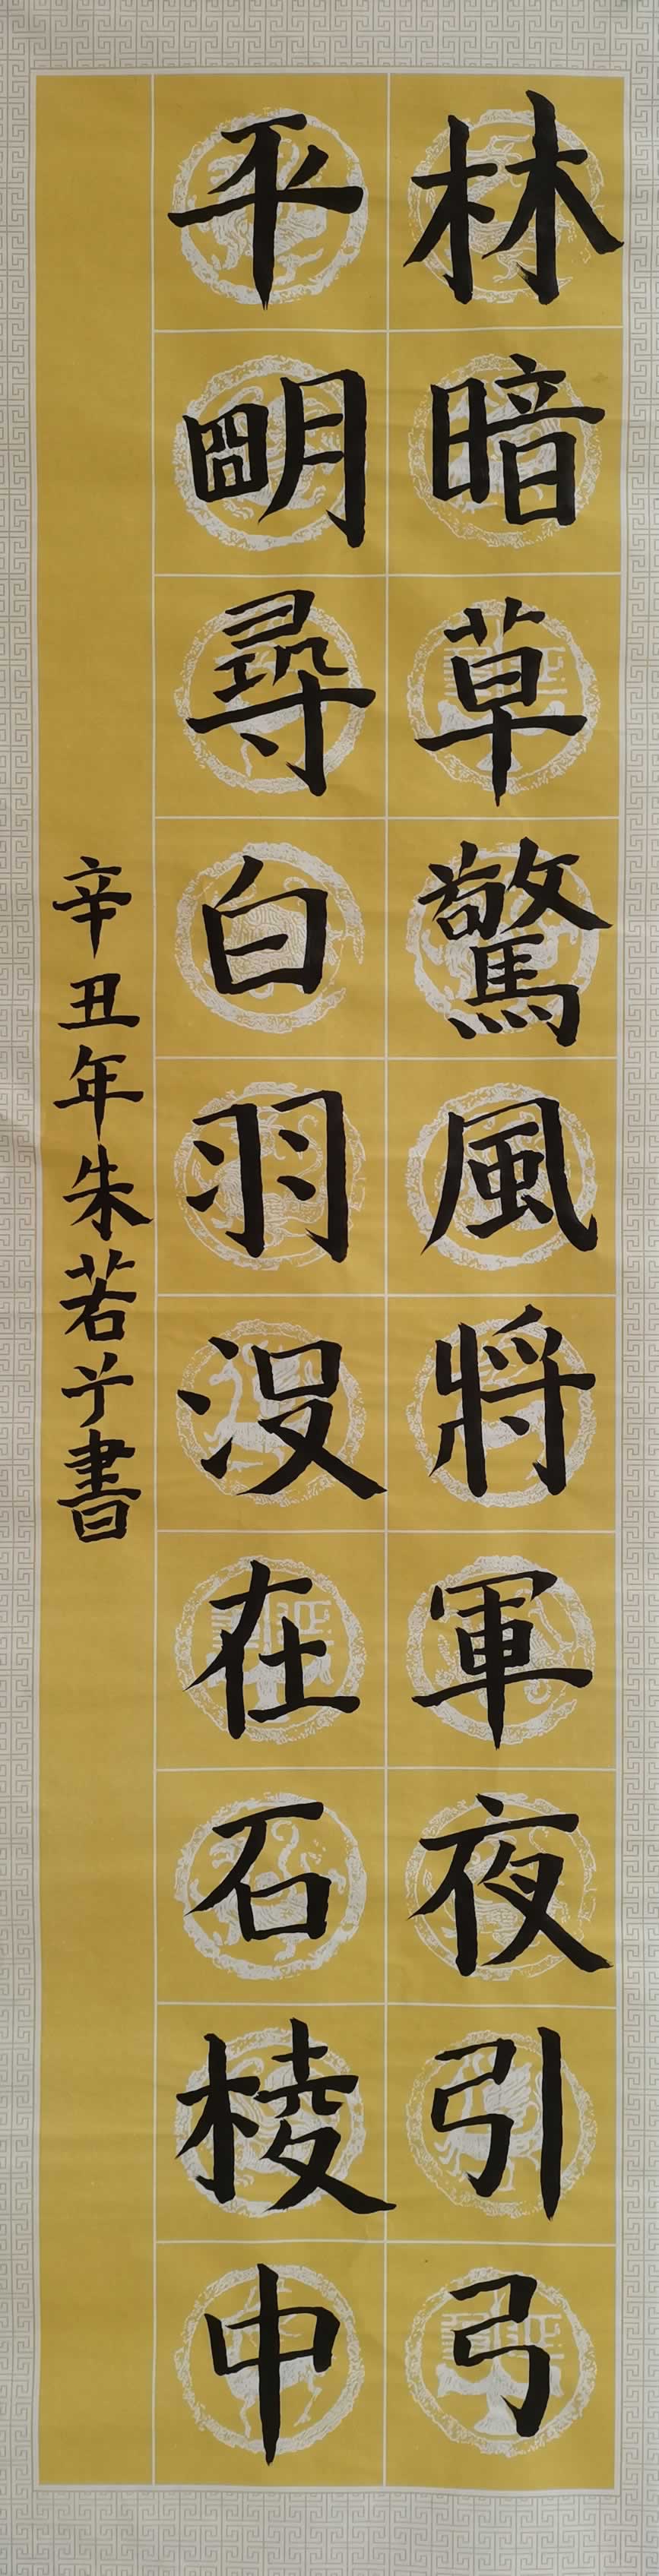 林暗草驚風將軍夜引弓
平明尋白羽没在石棱中
辛丑年朱若兮書